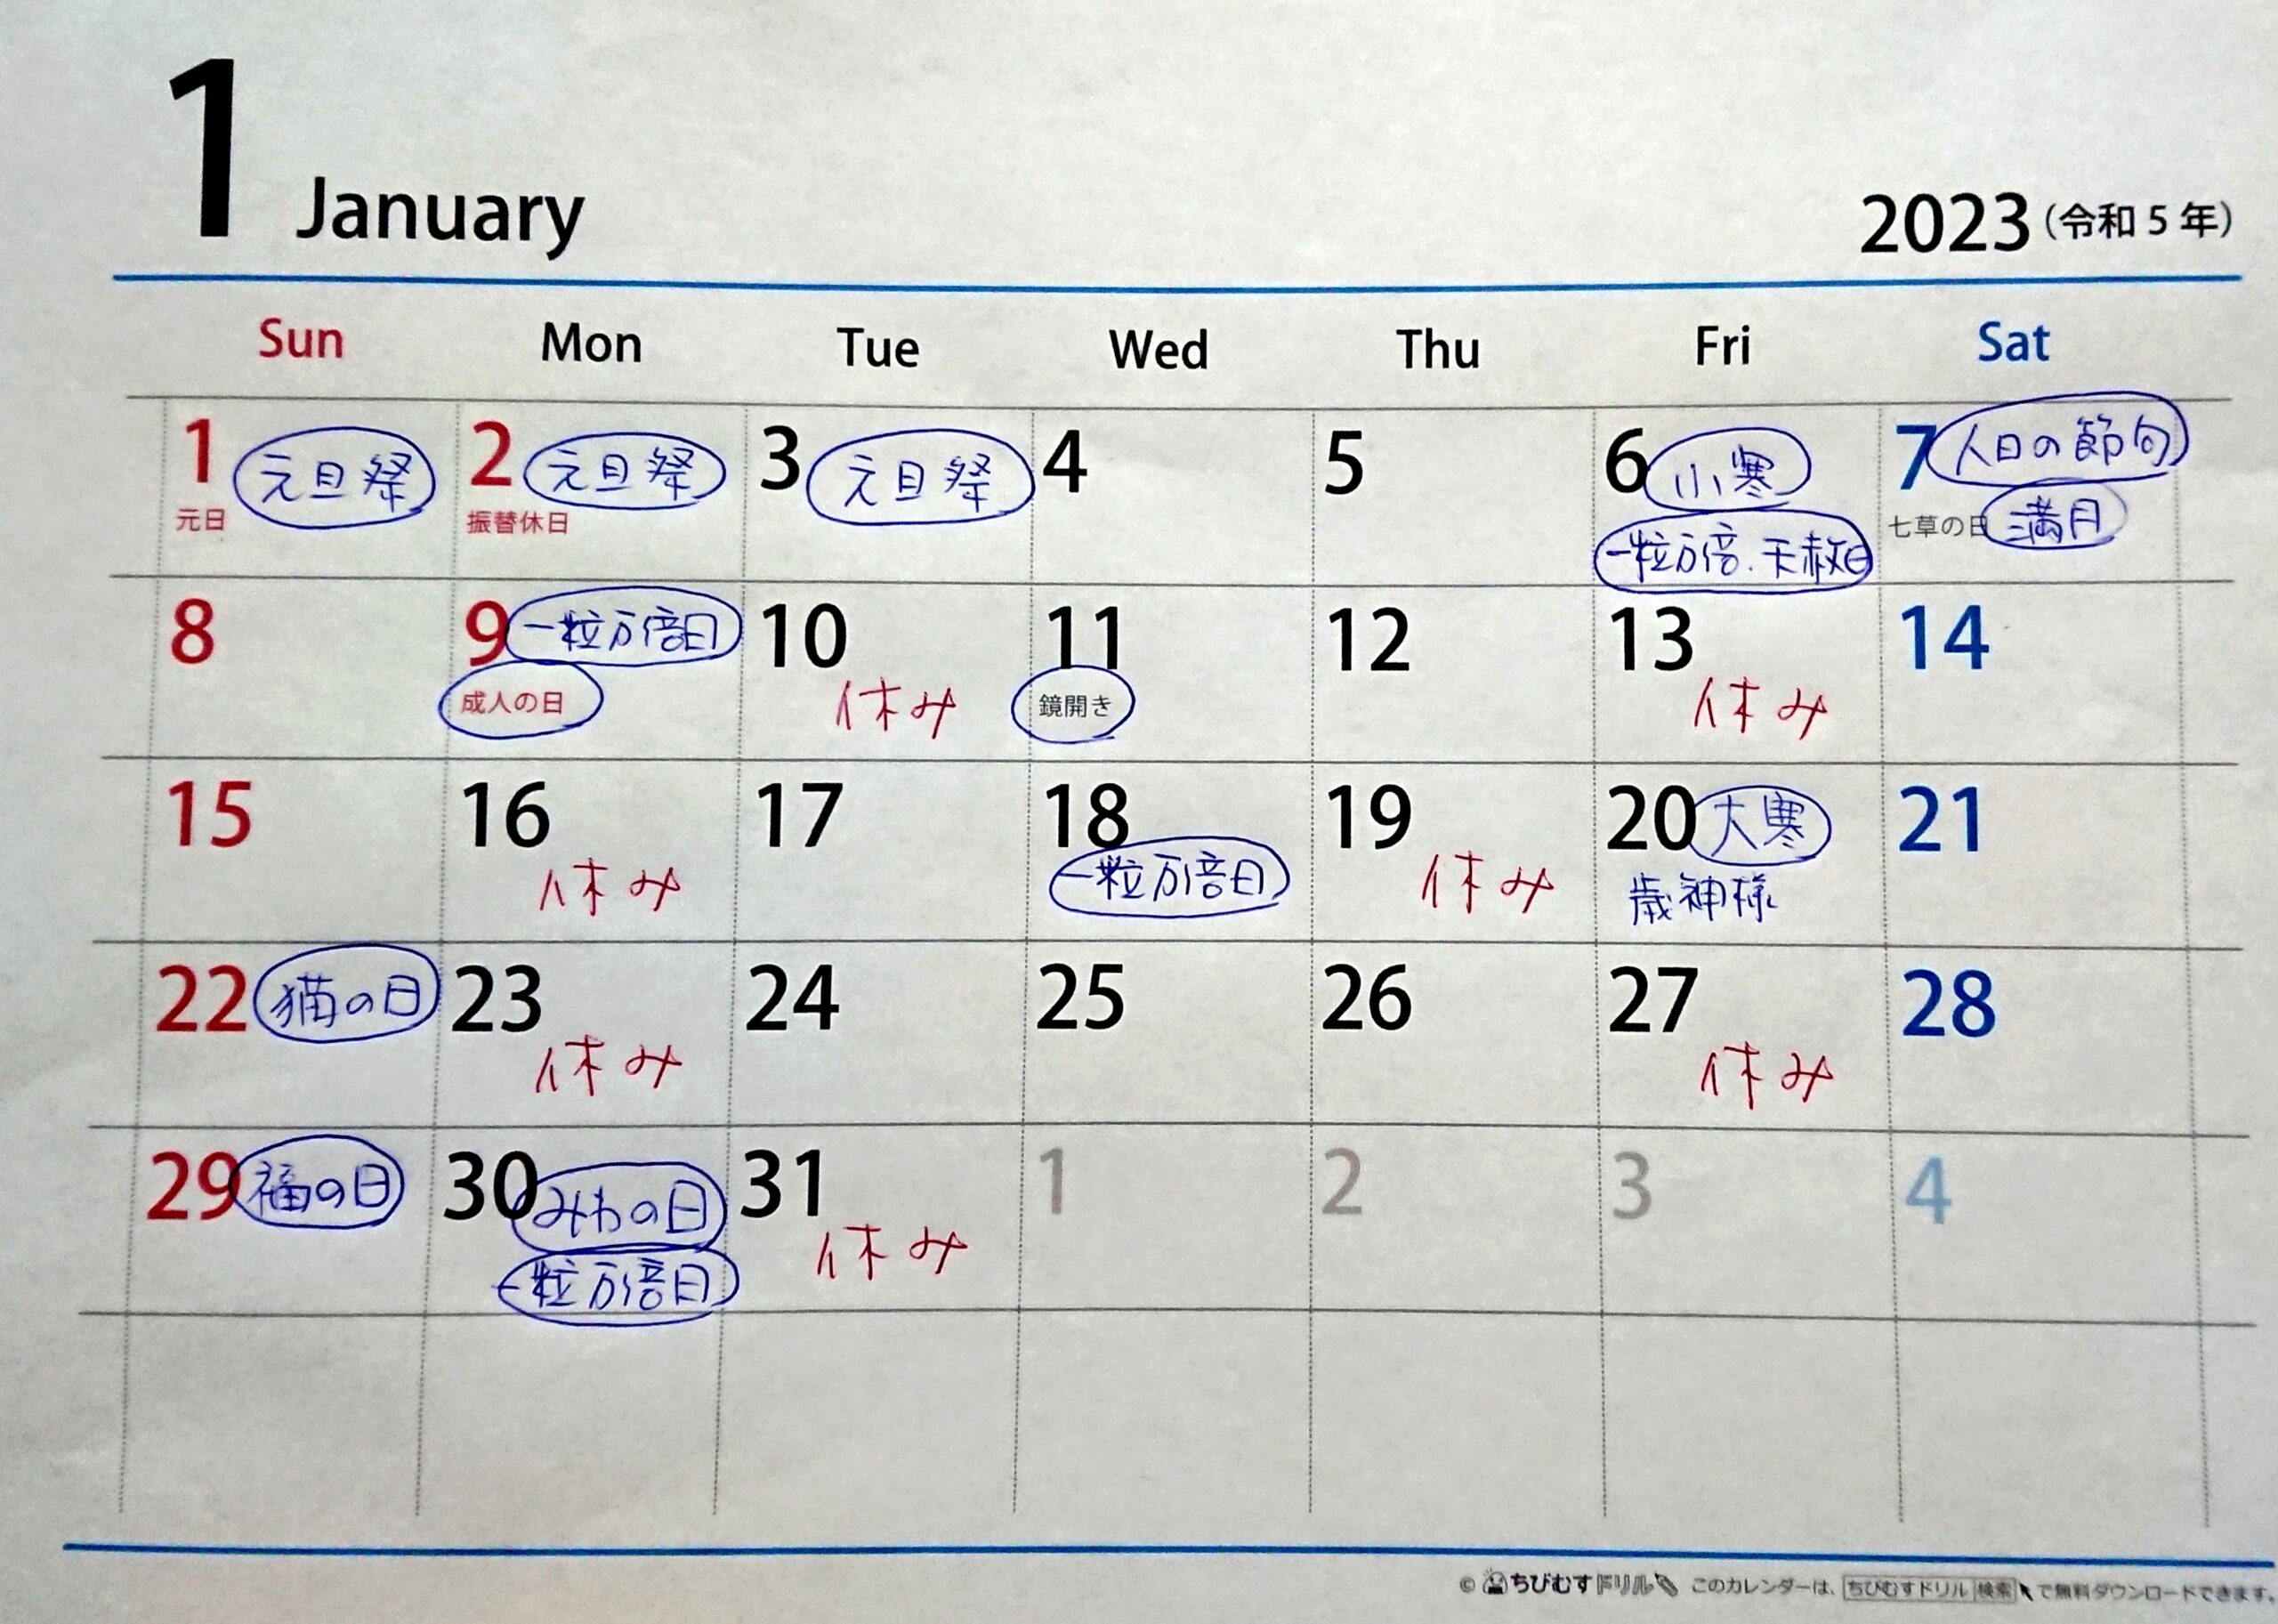 1 January
2023(令和5年)
Sun Mon Tue Wed Thu Fri Sat
1 元旦祭 2 元旦祭 3 元旦祭 4 5 6 小寒 7 人日の節句
元日 振替休日 一粒万倍.天赦日 七草の日 満月
8 9 一粒万倍日 10 11 12 13 14
成人の日 休み 鏡開き 休み
15 16 17 18 19 20 大寒 21
休み 一粒万倍日 休み 歳神様
22 猫の日 23 24 25 26 27 28
休み 休み
29 福の日 30 みわの日 31 1 2 3 4
一粒万倍日 休み
© ちびむすドリル このカレンダーは、ちびむすドリル 検索 で無料ダウンロードできます。